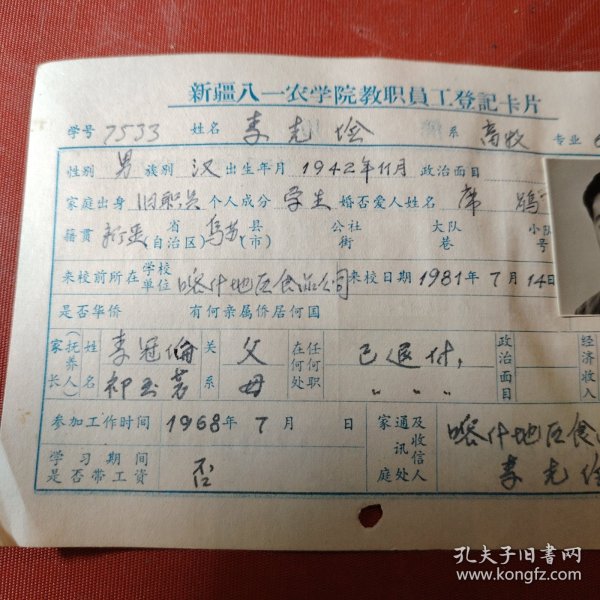 新疆八一农学院教职員工登記卡片
学号 7533 姓名 李光 系 高牧 专业
性别 男 族别 汉 出生年月 1942年11月 政治面目
家庭出身 旧职员 个人成分 学生 婚否爱人姓名 席
籍贯 新疆 省(自治区) 乌苏 县(市) 公社街 大队巷 小队号
来校前所在学校单位 喀什地区食品公司 来校日期 1981年7月14日
是否华侨 有何亲属侨居何国
家长(抚养人) 姓名 李冠倫 关系 父 在何处任何职 已退休, 政治面目 经济收入
母 〃 〃 〃
参加工作时间 1968年7月 日 家庭通讯处及收信人 喀什地区食
学习期间是否带工资 否 李光
孔夫子旧书网
www.kongfz.com